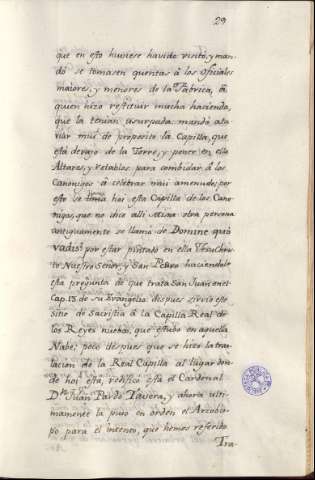 29
que en esto huviese havido visitó, y man
dó se tomasen quentas â los oficiales
maiores, y menores de la Fabrica, â
quien hizo restituir mucha hacienda,
que la tenian usurpada. mandó ata
viar mui de proposito la Capilla, que
está devajo de la Torre, y poner en ella
Altares, y retablos para combidar â los
Canonigos â celebrar mui amenudo; por
esto se llama hoi esta Capilla de los Cano
nigos, que no dice alli Missa otra persona
antiguamente se llamó de Domine quo
vadis? por estar pintado en ella Chris
to Nuestro Señor, y San Pedro haciendole
esta pregunta de que trata San Juan en el
Cap. 13 de su Evangelio despues sirvió este
sitio de Sacristia â la Capilla Real de
los Reyes nuebos, que estubo en aquella
Nabe; poco despues que se hizo la tras
lacion de la Real Capilla al lugar don
de hoi está, redifico esta el Cardenal
Dn. Juan Pardo Tavera, y ahora ulti
mamente la puso en orden el Arzobis
po para el intento, que hemos referido.
Tra